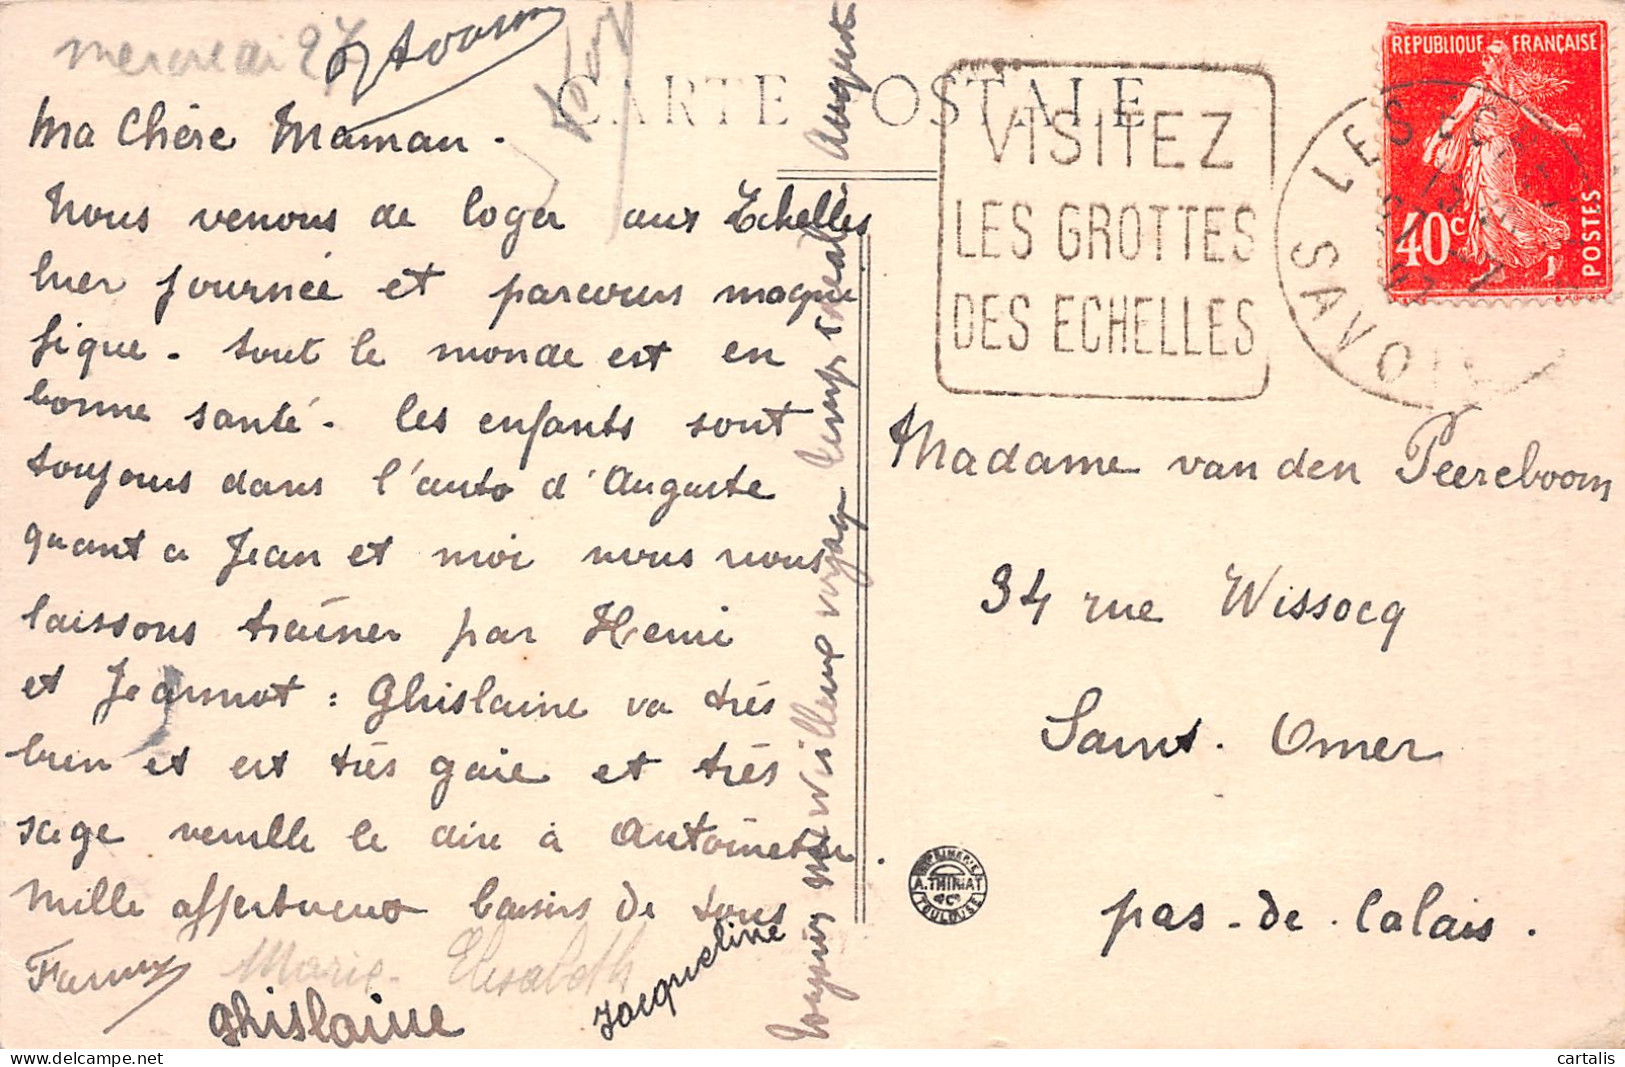 mercredi 27
CARTE POSTALE
Ma Chère Maman -
Nous venons de loger aux Echelles
hier journée et parcours magni
fique - tout le monde est en
bonne santé - les enfants sont
toujours dans l'auto d'Auguste
quant a Jean et moi nous nous
laissons traîner par Henri
et Jeannot : Ghislaine va très
bien et est très gaie et très
sage veuille le dire à Antoinette .
Mille affectueux baisers de tous
Fanny Marie- Elisabeth
Ghislaine Jacqueline
Toujours merveilleux voyage temps idéal Auguste
VISITEZ
LES GROTTES
DES ECHELLES
LES ECHELLES
SAVOIE
REPUBLIQUE FRANÇAISE
40c
POSTES
Madame van den Peereboom
34 rue Wissocq
Saint-Omer
pas-de-Calais.
IMPRIMERIE
A. THIRIAT
& Cie
TOULOUSE
cartalis